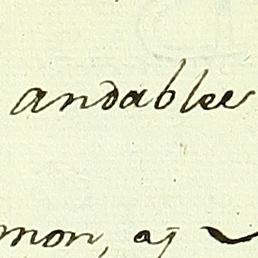 andablee
mon, af